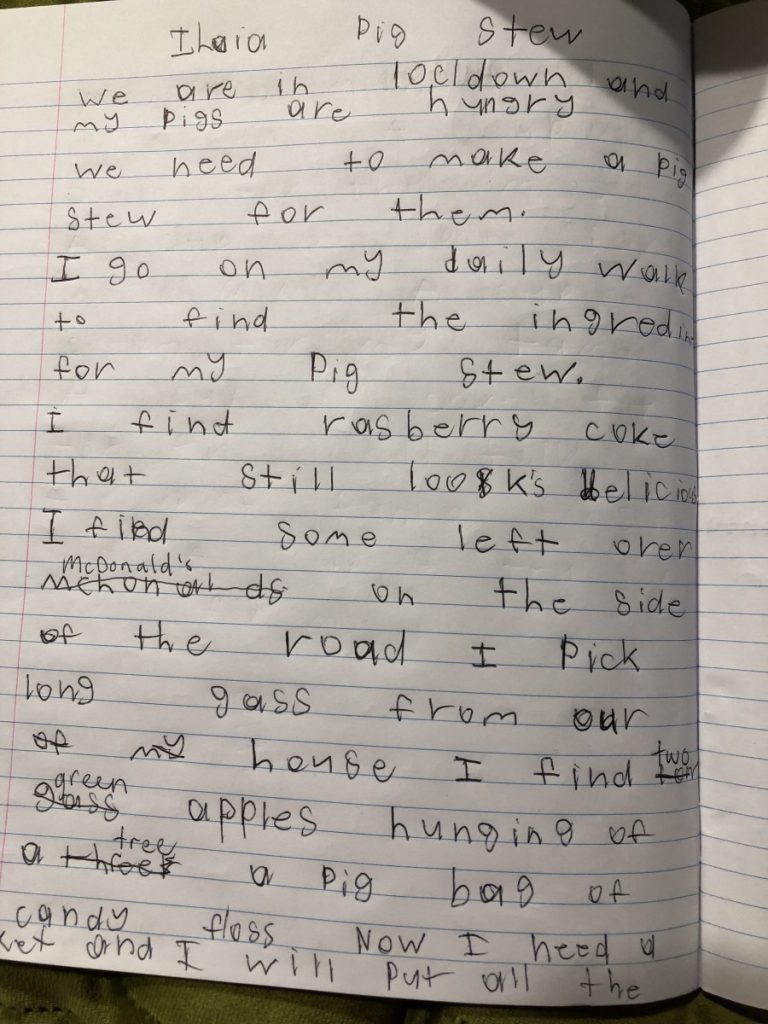 Ihaia Pig Stew
we are in locldown and
my pigs are hungry
we need to make a pig
stew for them.
I go on my daily walk
to find the ingredin
for my Pig stew.
I find rasberry coke
that still look's delicious
I find some left over
McDonald's
on the side
of the road I pick
long gass from our
of my house I find two
green apples hunging of
a tree a pig bag of
candy floss Now I need a
and I will put all the